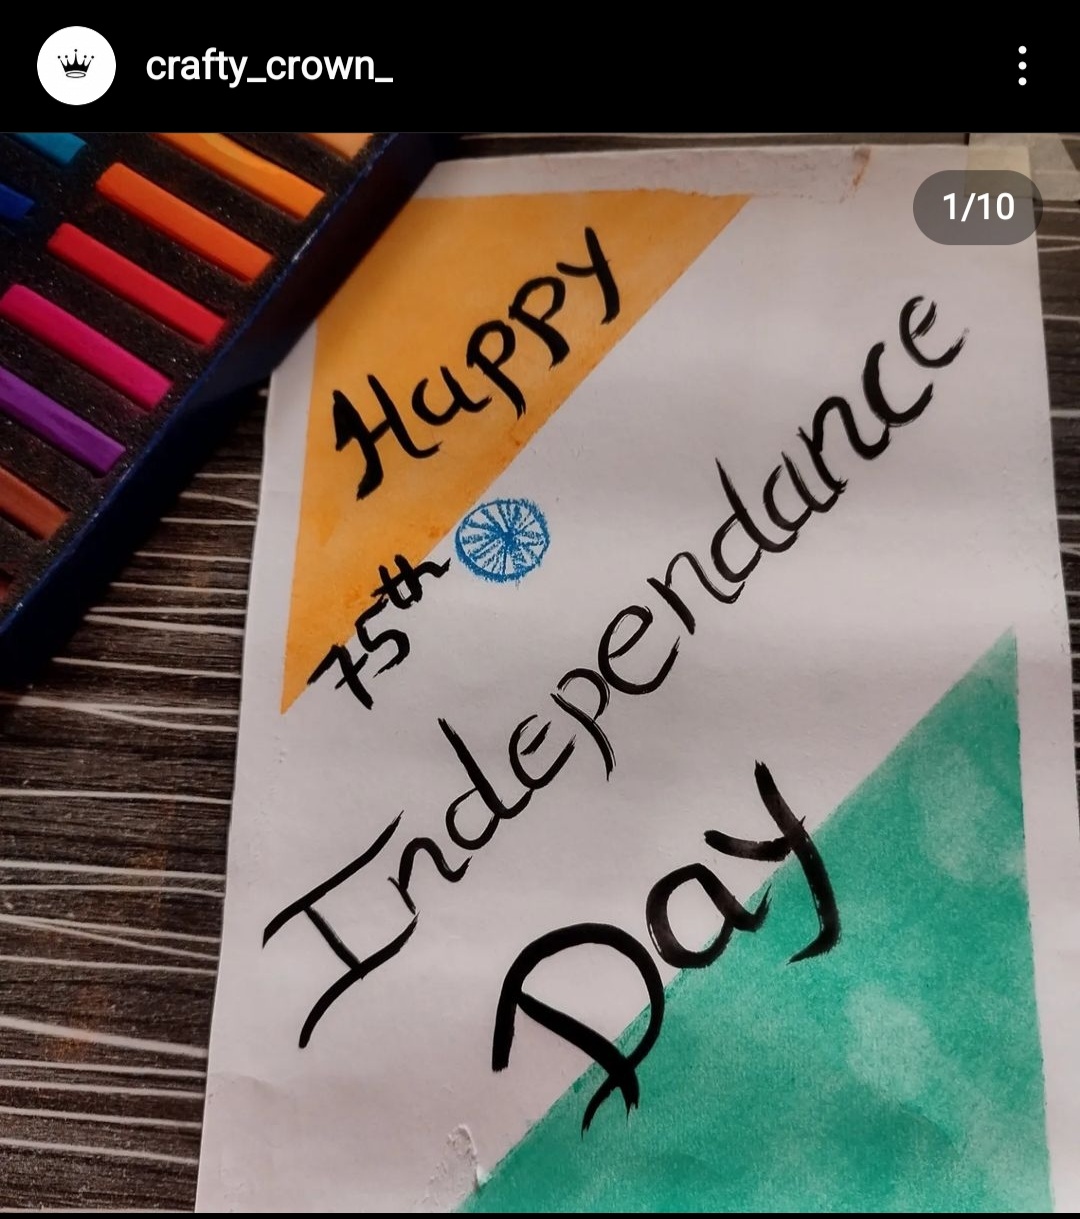 crafty_crown_
1/10
Happy
75th
Independance
Day